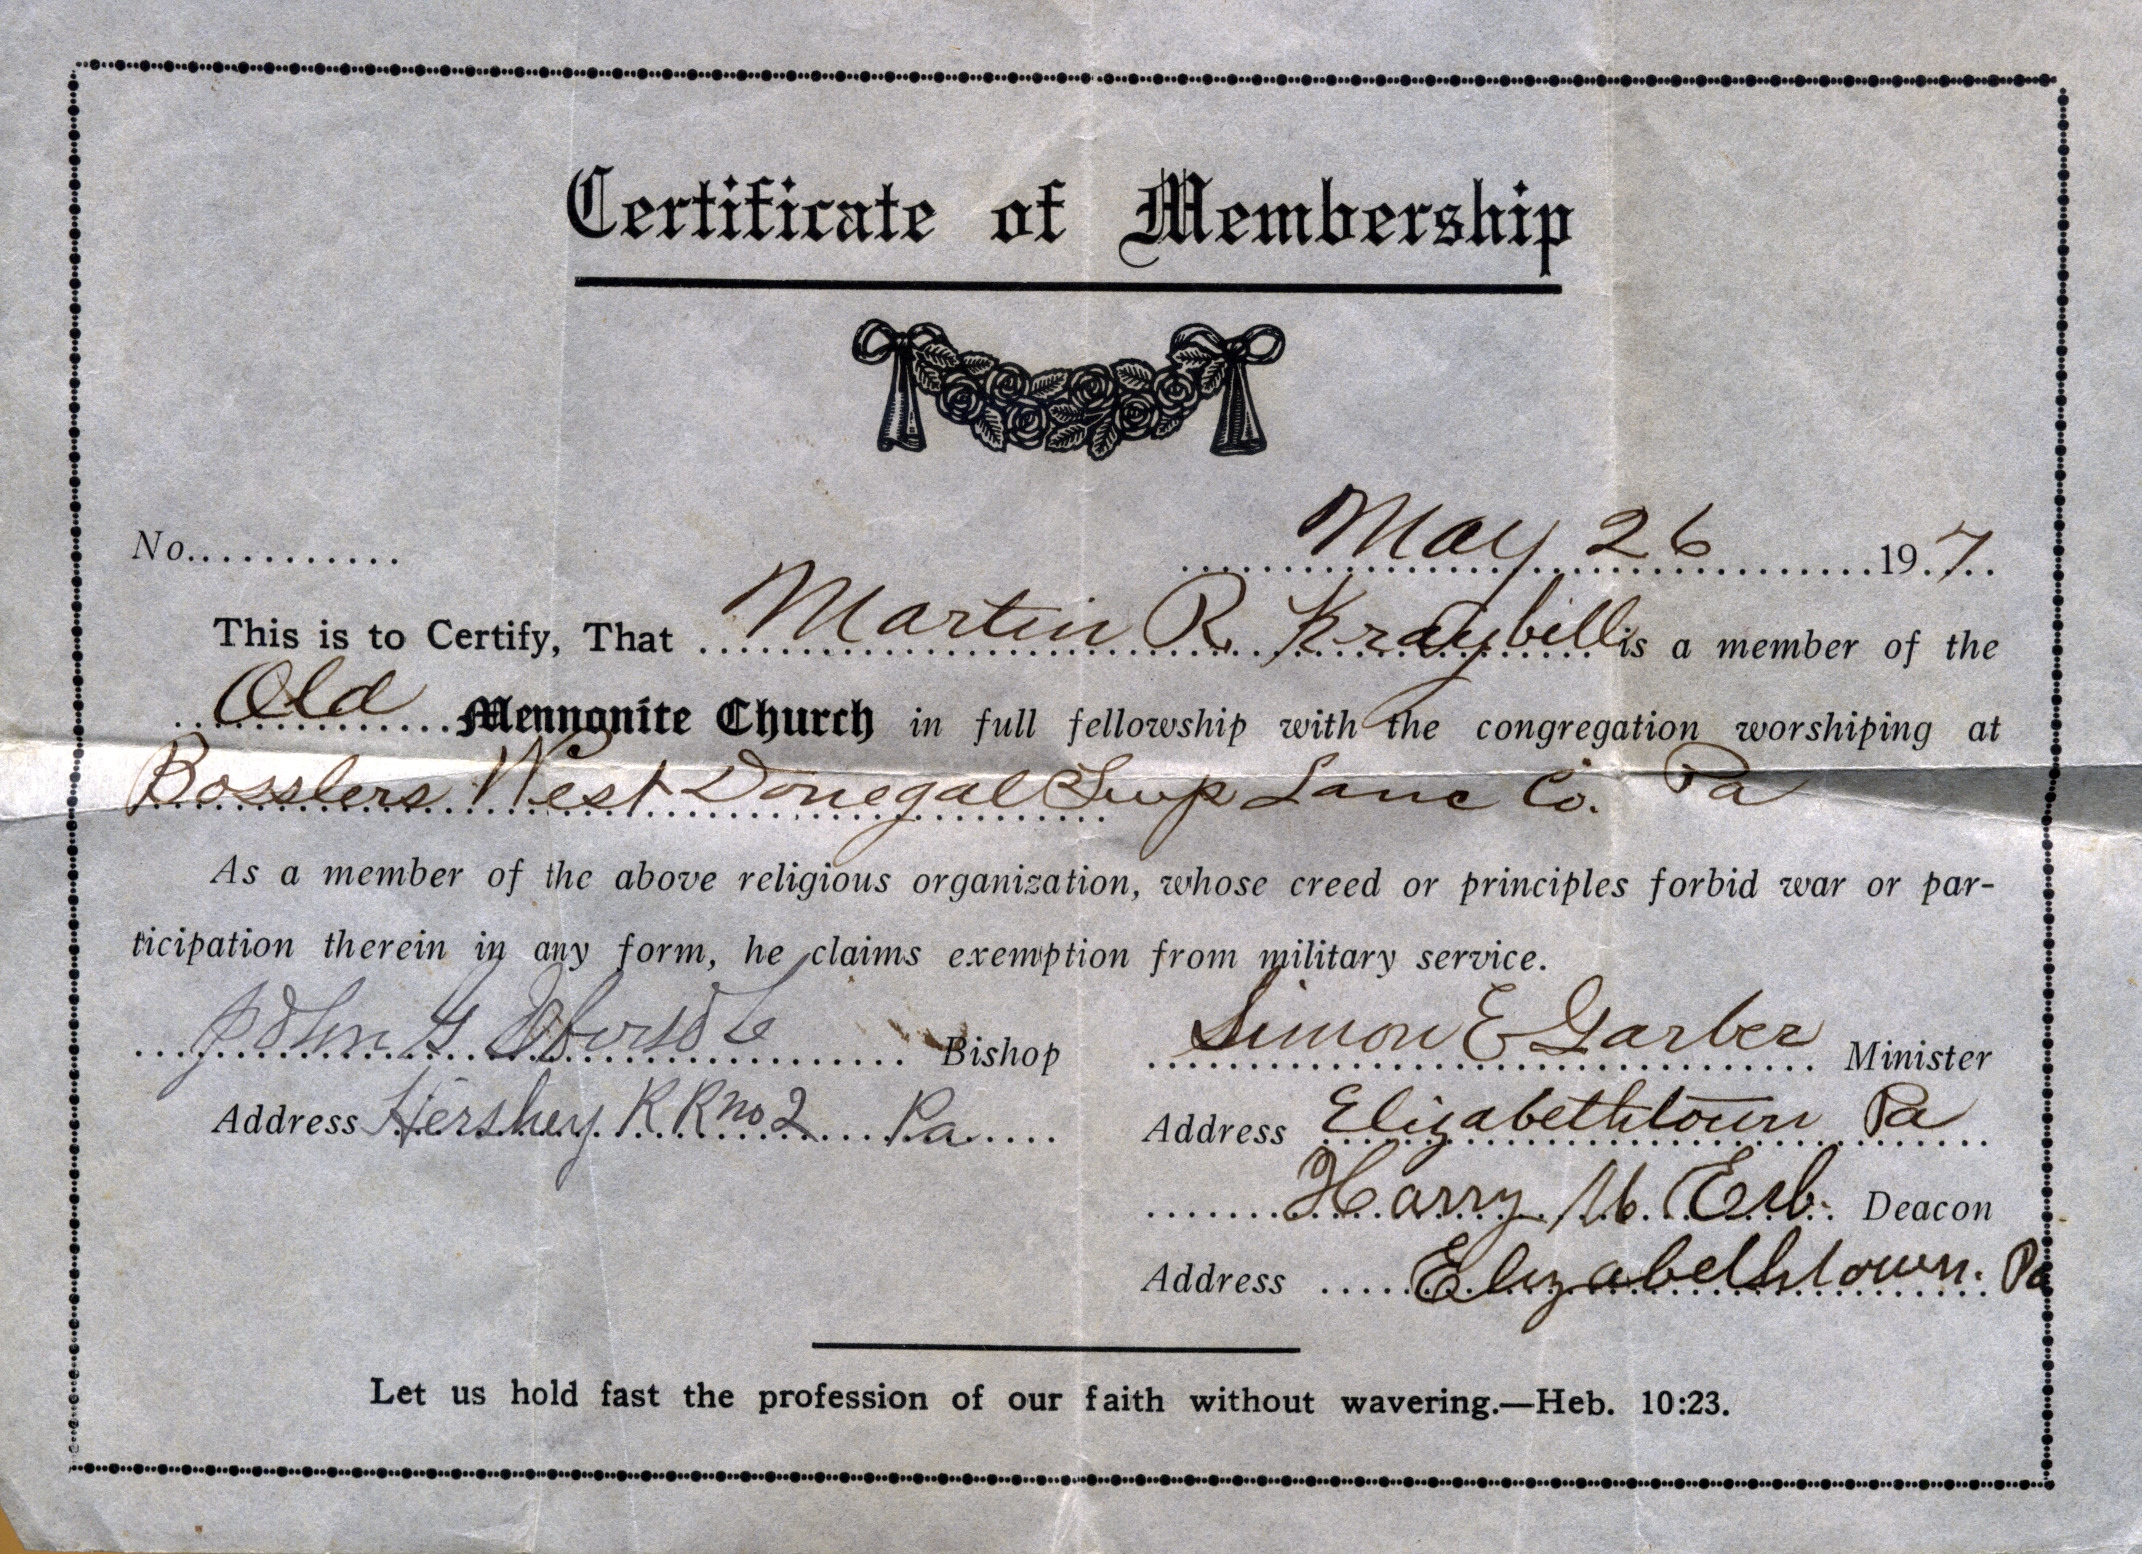 Certificate of Membership
No............
May 26 19.7..
This is to Certify, That Martin R. Kraybill is a member of the
Old Mennonite Church in full fellowship with the congregation worshiping at
Bosslers West Donegal Twp Lanc Co. Pa
As a member of the above religious organization, whose creed or principles forbid war or par-
ticipation therein in any form, he claims exemption from military service.
John G Ebersole Bishop
Simon E Garber Minister
Address Hershey R R no 2 Pa
Address Elizabethtown Pa
Harry Erb. Deacon
Address Elizabethtown. Pa
Let us hold fast the profession of our faith without wavering.—Heb. 10:23.